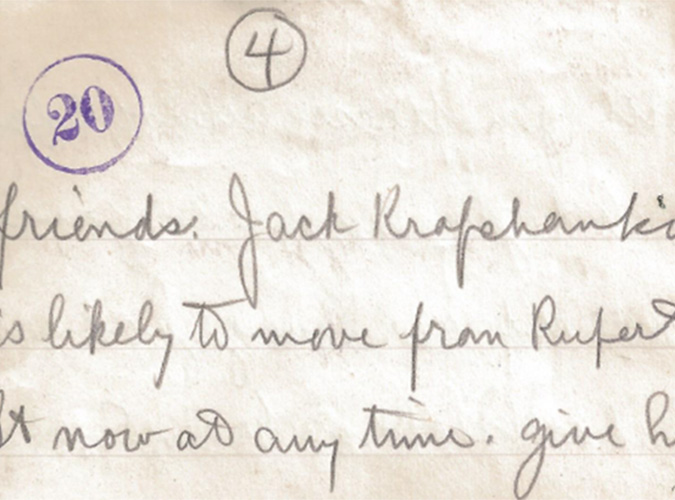 4
20
friends. Jack
is likely to move from Rupert
now at any time. give